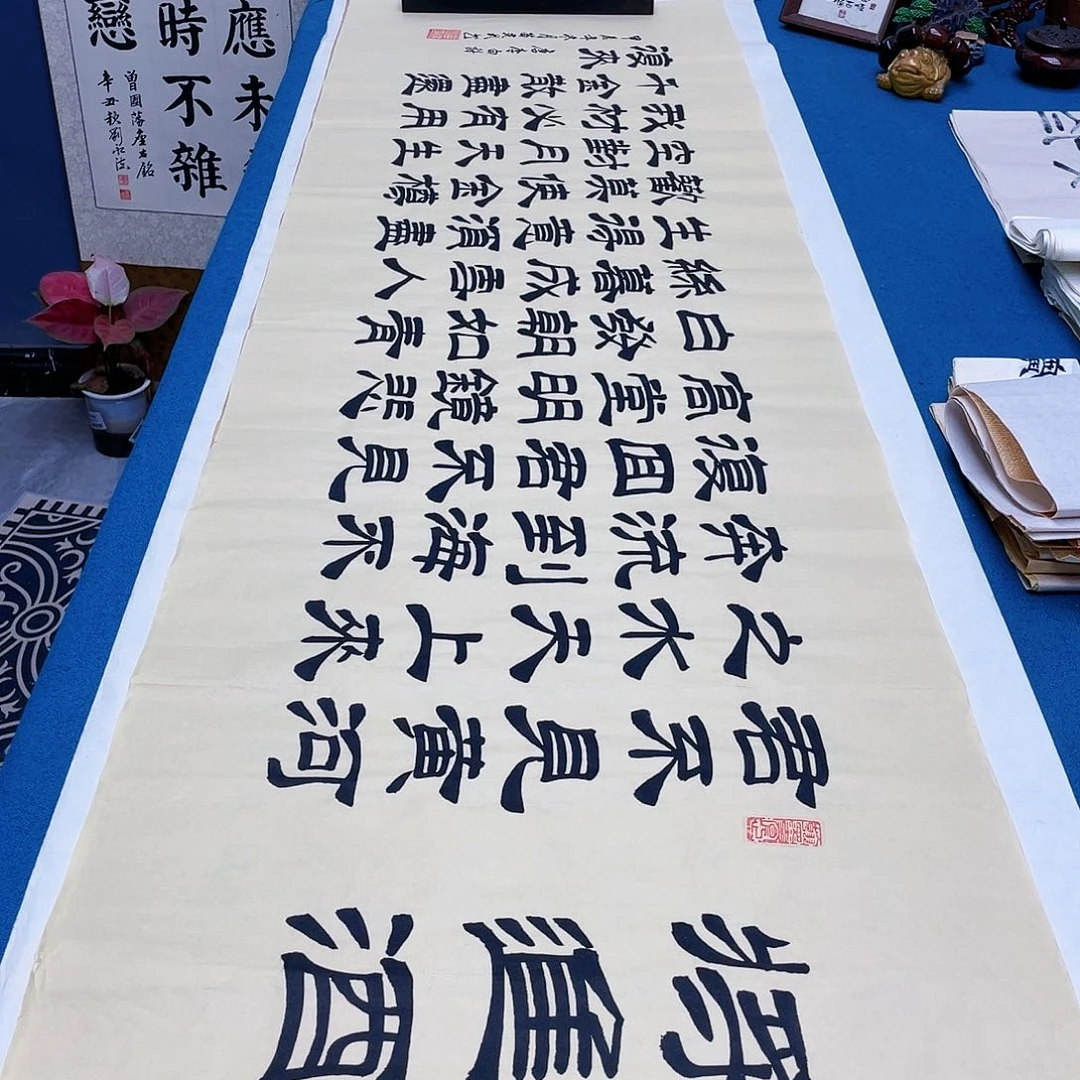 將進酒
君不見黃河
之水天上來
奔流到海不
復回君不見
高堂明鏡悲
白發朝如青
絲暮成雪人
生得意須盡
歡莫使金樽
空對月天生
我材必有用
千金散盡還
復來
應未
時不雜
戀
曾國藩座右銘
辛丑秋劉